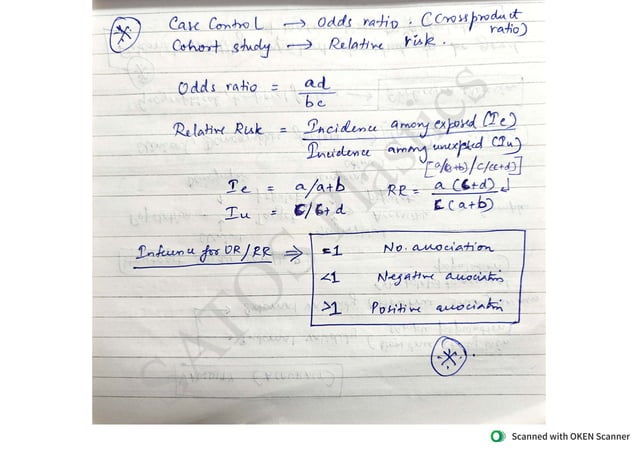 Case Control → Odds ratio. (Crossproduct ratio)
Cohort study → Relative risk.
Odds ratio = ad/bc
Relative Risk = Incidence among exposed (Ie)
Incidence among unexposed (Iu)
[a/(a+b)/c/(c+d)]
Ie = a/a+b
RR = a (c+d)
c (a+b)
Iu = c/c+d
Inference for OR/RR ⇒
=1 No. association
<1 Negative association
>1 Positive association
SATOS Plastics
Scanned with OKEN Scanner